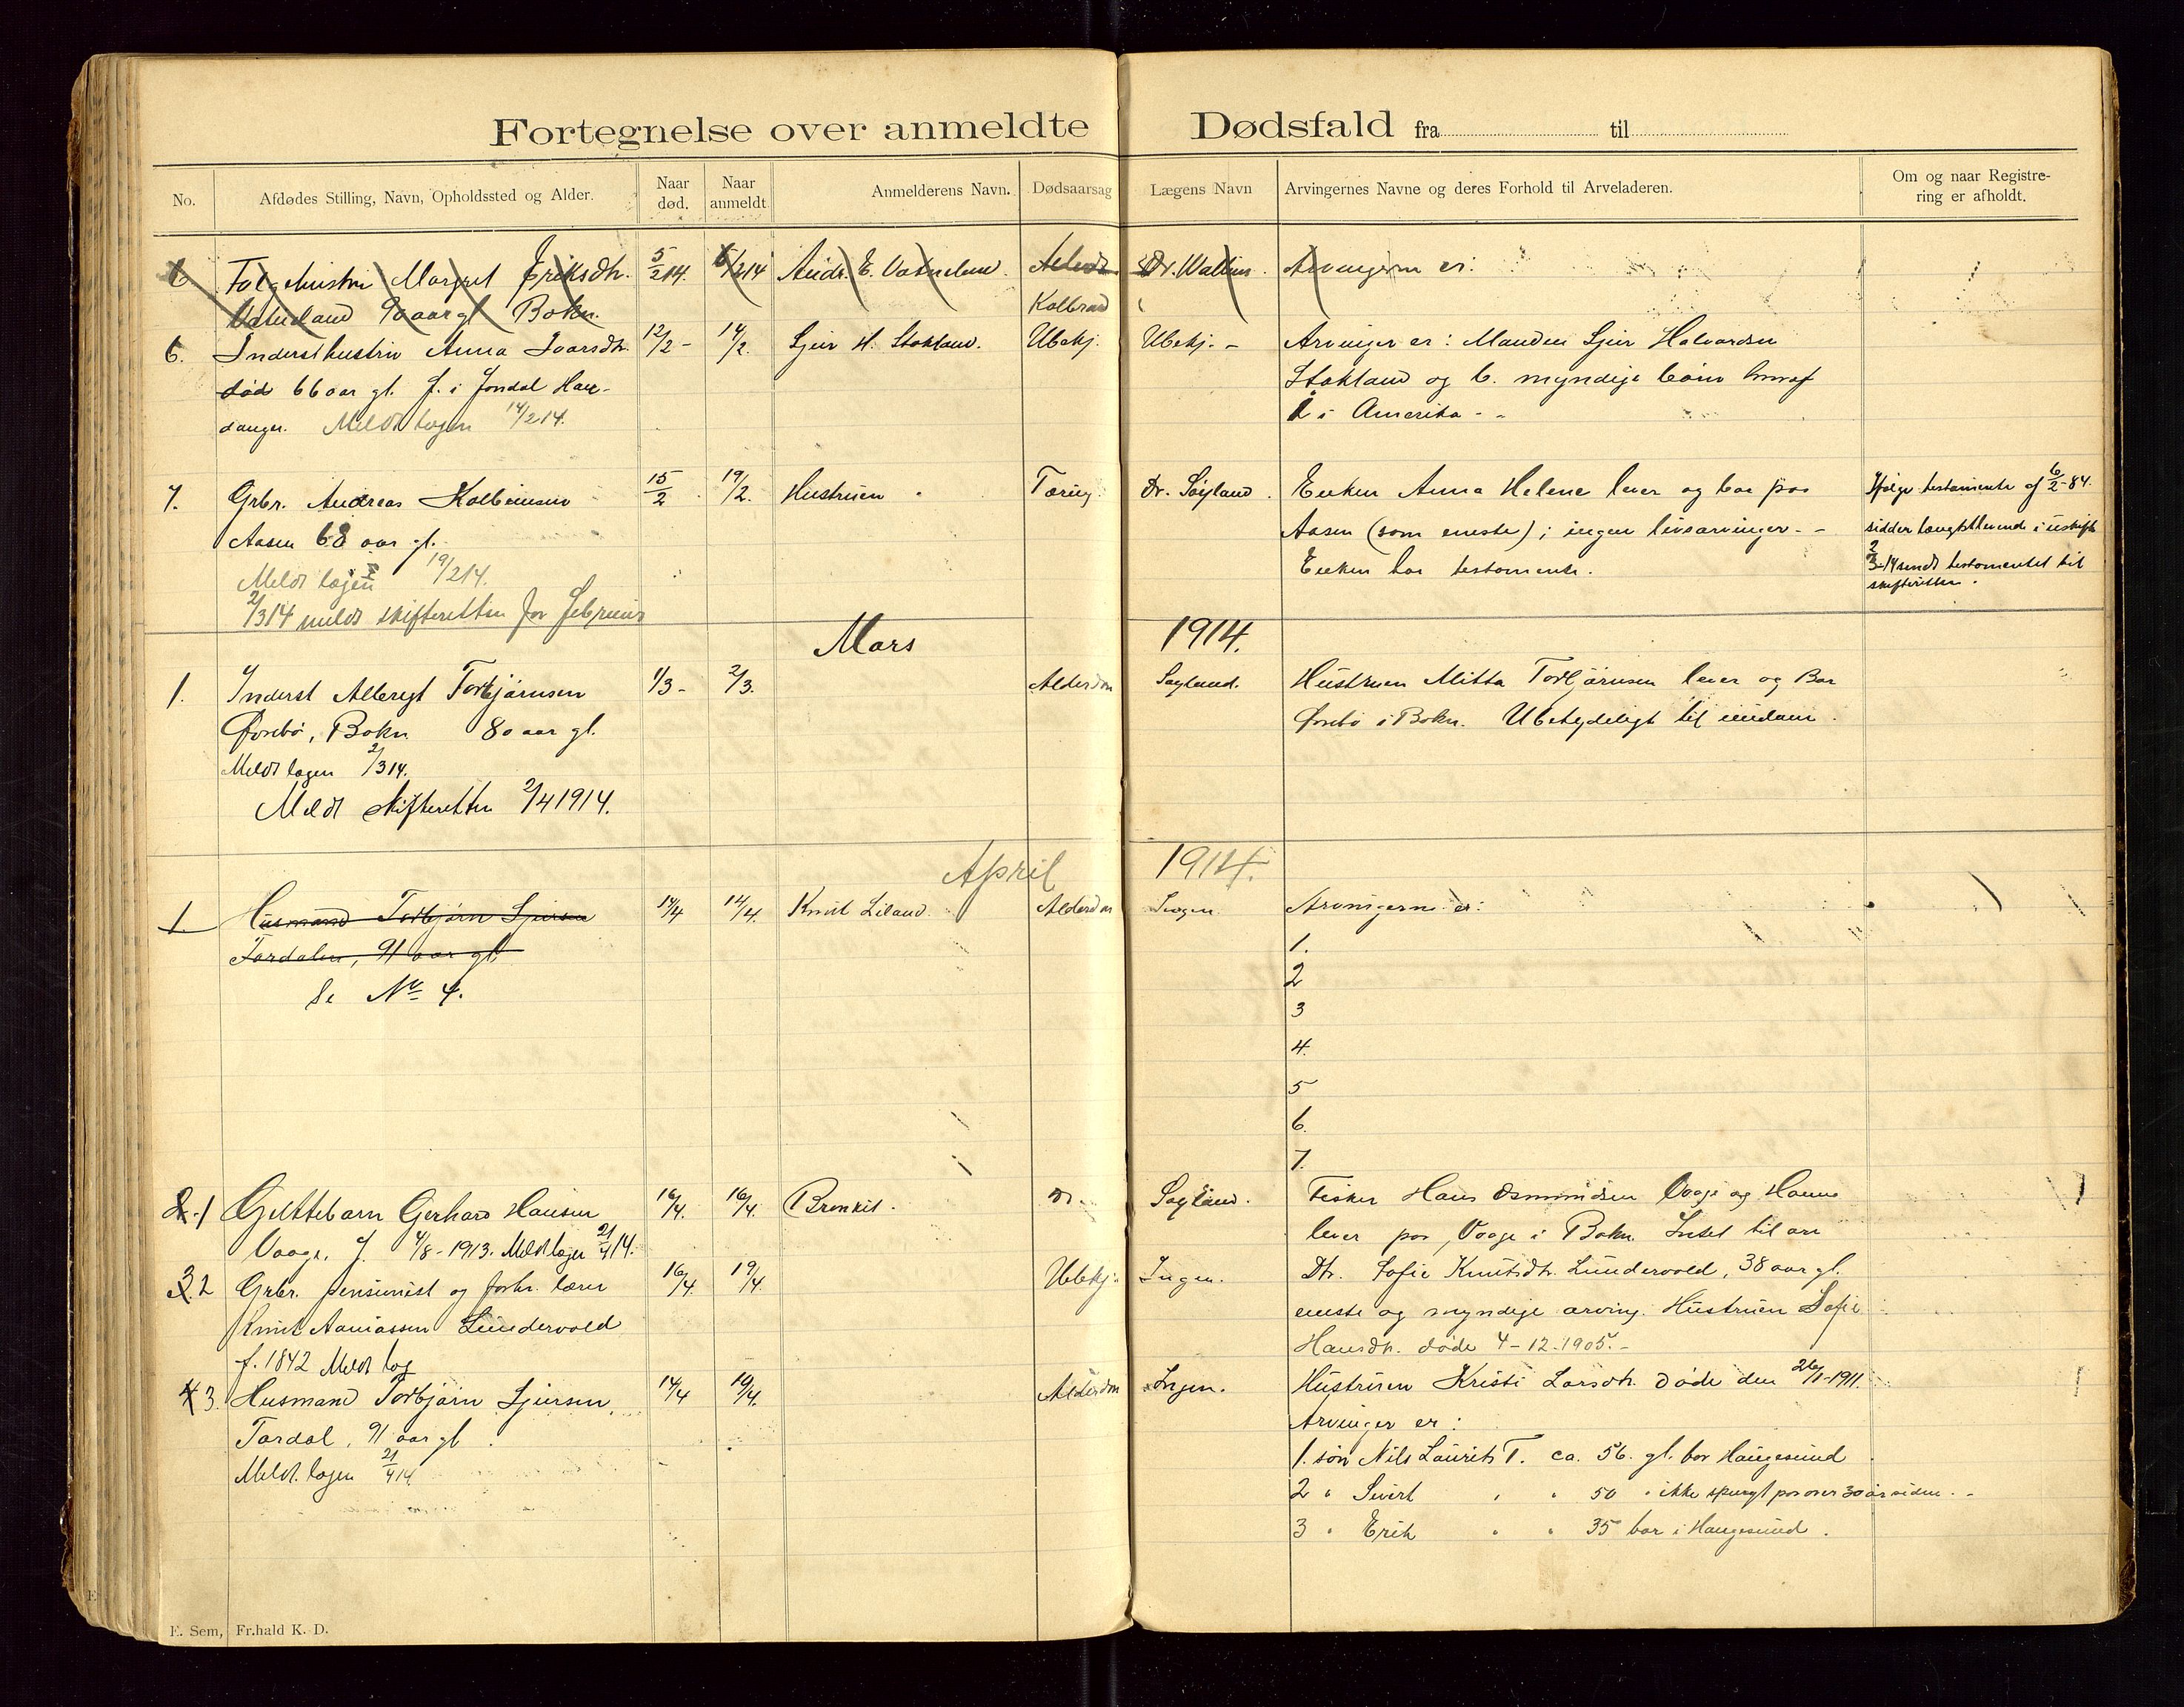 Fortegnelse over anmeldte Dødsfald fra til
No. Afdødes Stilling, Navn, Opholdssted og Alder. Naar død. Naar anmeldt Anmelderens Navn. Dødsaarsag Lægens Navn Arvingernes Navne og deres Forhold til Arveladeren. Om og naar Registrering er afholdt.
6 Margret Eriksdtr. 5/2 14. 5/2 14 Andr. E. Vatneland. Dr. Wallin. Arvingern er:
Vatneland 90 aar gl Bokn. Kolbrand
6. Indersthustru Anna Ivarsdtr. 12/2 - 14/2. Sjur H. Stokland. Ubekj. Ubekj. - Arvinger er: Manden Sjur Halvardsen
død 66 aar gl. f. i Jondal Har- Stokland og 6. myndige børn hvoraf
danger. Meldt lægen 14/2 14. 1 i Amerika - -
7. Grbr. Andreas Kolbeinsen 15/2 19/2. Hustruen Tæring Dr. Søyland. Enken Anna Helene lever og bor paa Ifølge testamente af 6/2-84.
Aasen 68 aar gl. Aasen (som eneste); ingen livsarvinger - - sidder længstlevende i uskifte
Meldt lægen 19/2 14. Enken har testamente. 2/3-14 sendt testamentet til
2/3 14 meldt skifteretten for Februar skifteretten.
Mars 1914.
1. Inderst Albregt Torbjørnsen 1/3 - 2/3. Alderdom Søyland. Hustruen Mitta Torbjørnsen lever og Bor
Øvrebø, Bokn 80 aar gl. Øvrebø i Bokn. Ubetydeligt til eiendom.
Meldt lægen 2/3 14.
Meldt skifteretten 2/4 1914.
April 1914.
1. Husmand Torbjørn Sjursen 14/4 14/4. Knut Liland. Alderdom Ingen. Arvingerne er:
Tordalen, 91 aar gl. 1.
Se No 4. 2
3
4.
5
6.
7.
2. 1 Gjerhard Hansen 16/4. 16/4. Bronkit. Dr. Søyland. Fisker Hans Osmundsen Vaage og Hanna
Vaage, f. 4/8-1913. Meldt læge 21/4 14. lever paa Vaage i Bokn. Intet til arv
3. 2 Grbr. pensionist og forhv. lærer 16/4. 19/4. Ubekj. Ingen. Dtr. Sofie Knutsdtr. Lundervold, 38 aar gl.
Knut Aaniassen Lundervold eneste og myndige arving. Hustruen Sofie
f. 1842 Meldt læg Hansdtr. døde 4-12-1905. -
4 3. Husmand Torbjørn Sjursen, 14/4 19/4. Alderdom Ingen. Hustruen Kristi Larsdtr. døde den 26/1-1911.
Tordal, 91 aar gl. Arvinger er:
Meldt. lægen 21/4 14. 1. søn Nils Laurits T. ca. 56. gl. bor Haugesund
2 " Sivert " " 50 " ikke spurgt paa over 30 aar siden. -
3 " Erik " " 35 bor i Haugesund.
E. Sem, Fr.hald K. D.